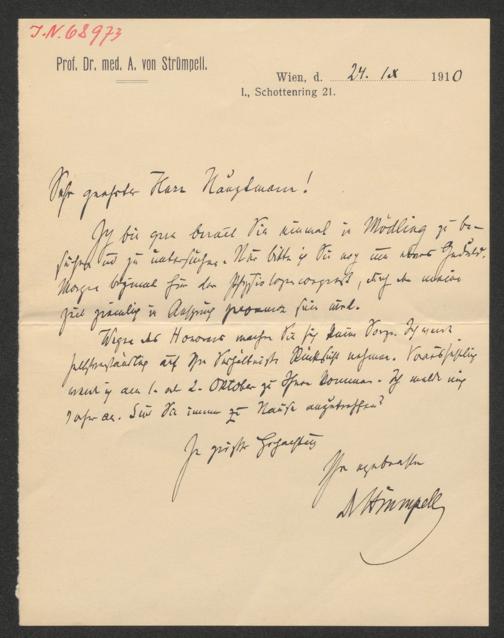 I.N. 68973
Prof. Dr. med. A. von Strümpell.
Wien, d. 24. IX 1910
I., Schottenring 21.
Sehr geehrter Herr Hauptmann!
Ich bin gern bereit Sie einmal in Mödling zu be-
suchen und zu untersuchen. Nur bitte ich Sie noch um etwas Geduld.
Morgen beginnt hier der, durch den meine
Zeit ziemlich in Anspruch genommen sein wird.
Wegen des Honorars machen Sie sich keine Sorge. Ich werde
selbstverständlich auf Ihre Verhältnisse Rücksicht nehmen. Voraussichtlich
werde ich am 1. od 2. Oktober zu Ihnen kommen. Ich melde mich
vorher an. Sind Sie immer zu Hause anzutreffen?
In größter Hochachtung
Ihr ergebenster
Dr Strümpell